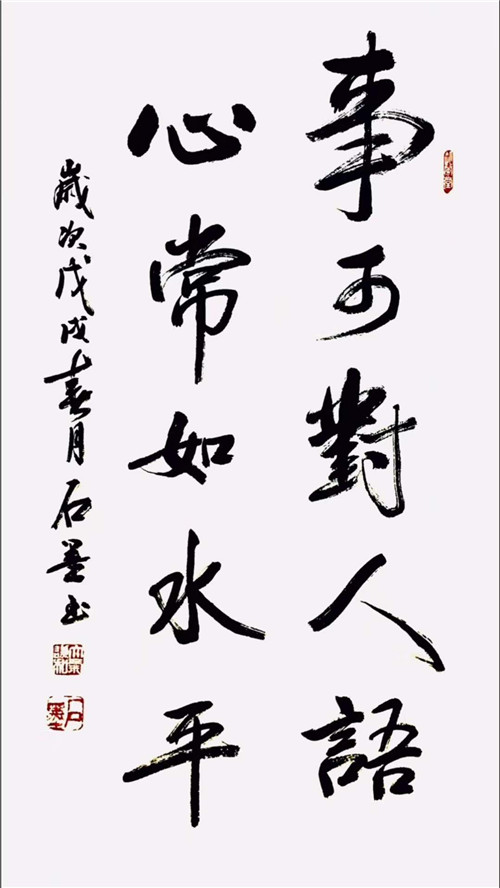 事可對人語
心常如水平
歲次戊戌春月石墨書